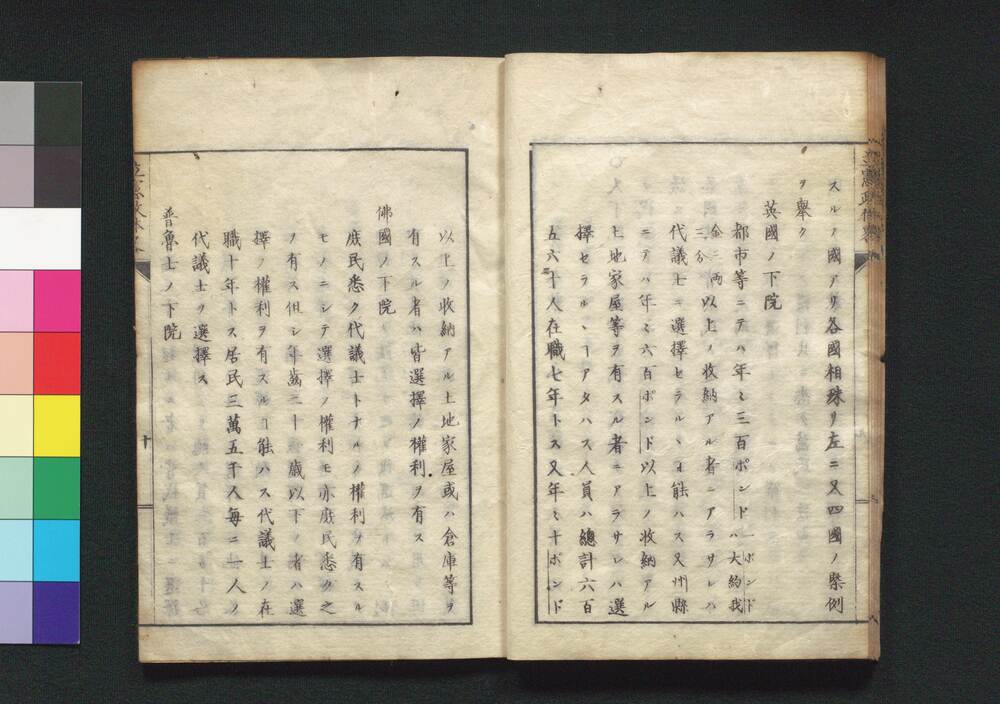 スルノ國アリ各國相殊リ左ニ又四國ノ槩例
ヲ擧ク
英國ノ下院
都市等ニテハ年ミ三百ポンド一ポンドハ大約我
金三兩三分以上ノ收納アル者ニアラサレハ
代議士ニ選擇セラルヽヿ能ハス又州縣
ニテハ年ミ六百ポンド以上ノ收納アル
土地家屋等ヲ有スル者ニアラサレハ選
擇セラルヽヿアタハス人員ハ總計六百
五六十人在職七年トス又年ミ十ポンド
以上ノ收納アル土地家屋或ハ倉庫等ヲ
有スル者ハ皆選擇ノ權利ヲ有ス
佛國ノ下院
庶民悉ク代議士トナルノ權利ヲ有スル
モノニシテ選擇ノ權利モ亦庶民悉ク之
ヲ有ス但シ年齒二十歳以下ノ者ハ選
擇ノ權利ヲ有スルヿ能ハス代議士ノ在
職十年トス居民三萬五千人每ニ一人ノ
代議士ヲ選擇ス
普魯士ノ下院
十